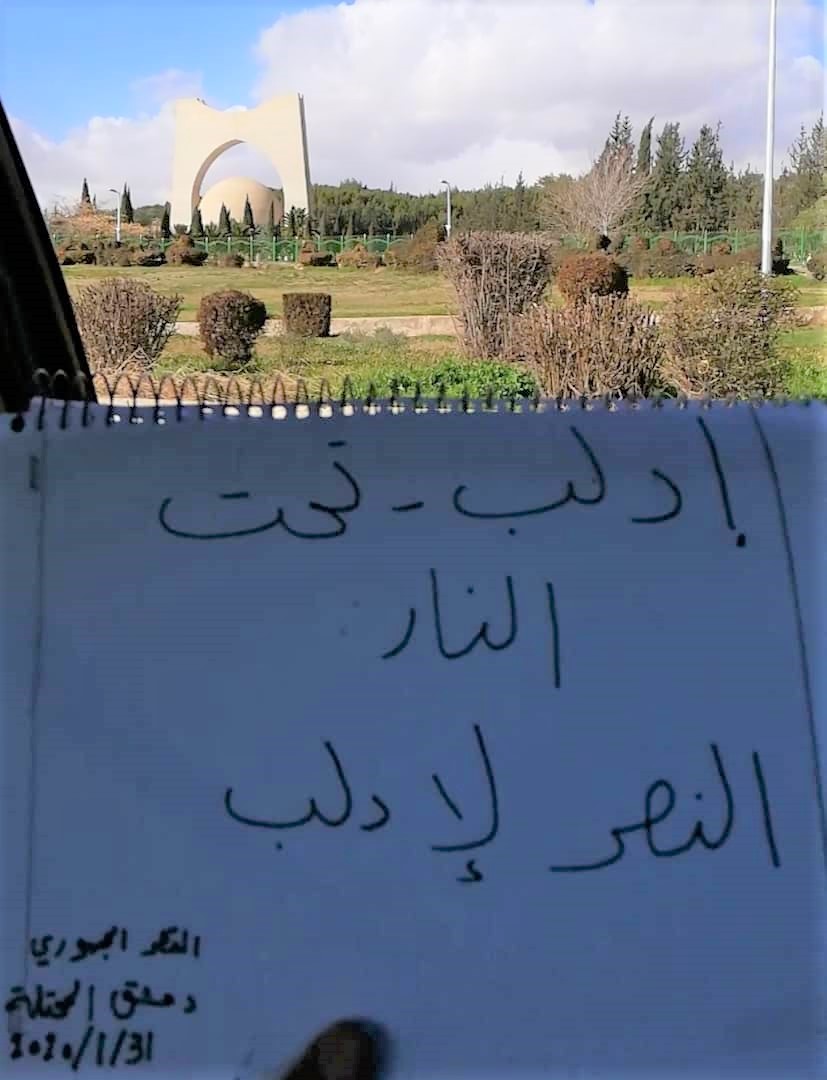 إدلب - تحت
النار
النصر لإدلب
القصر الجمهوري
دمشق المحتلة
2020/1/31